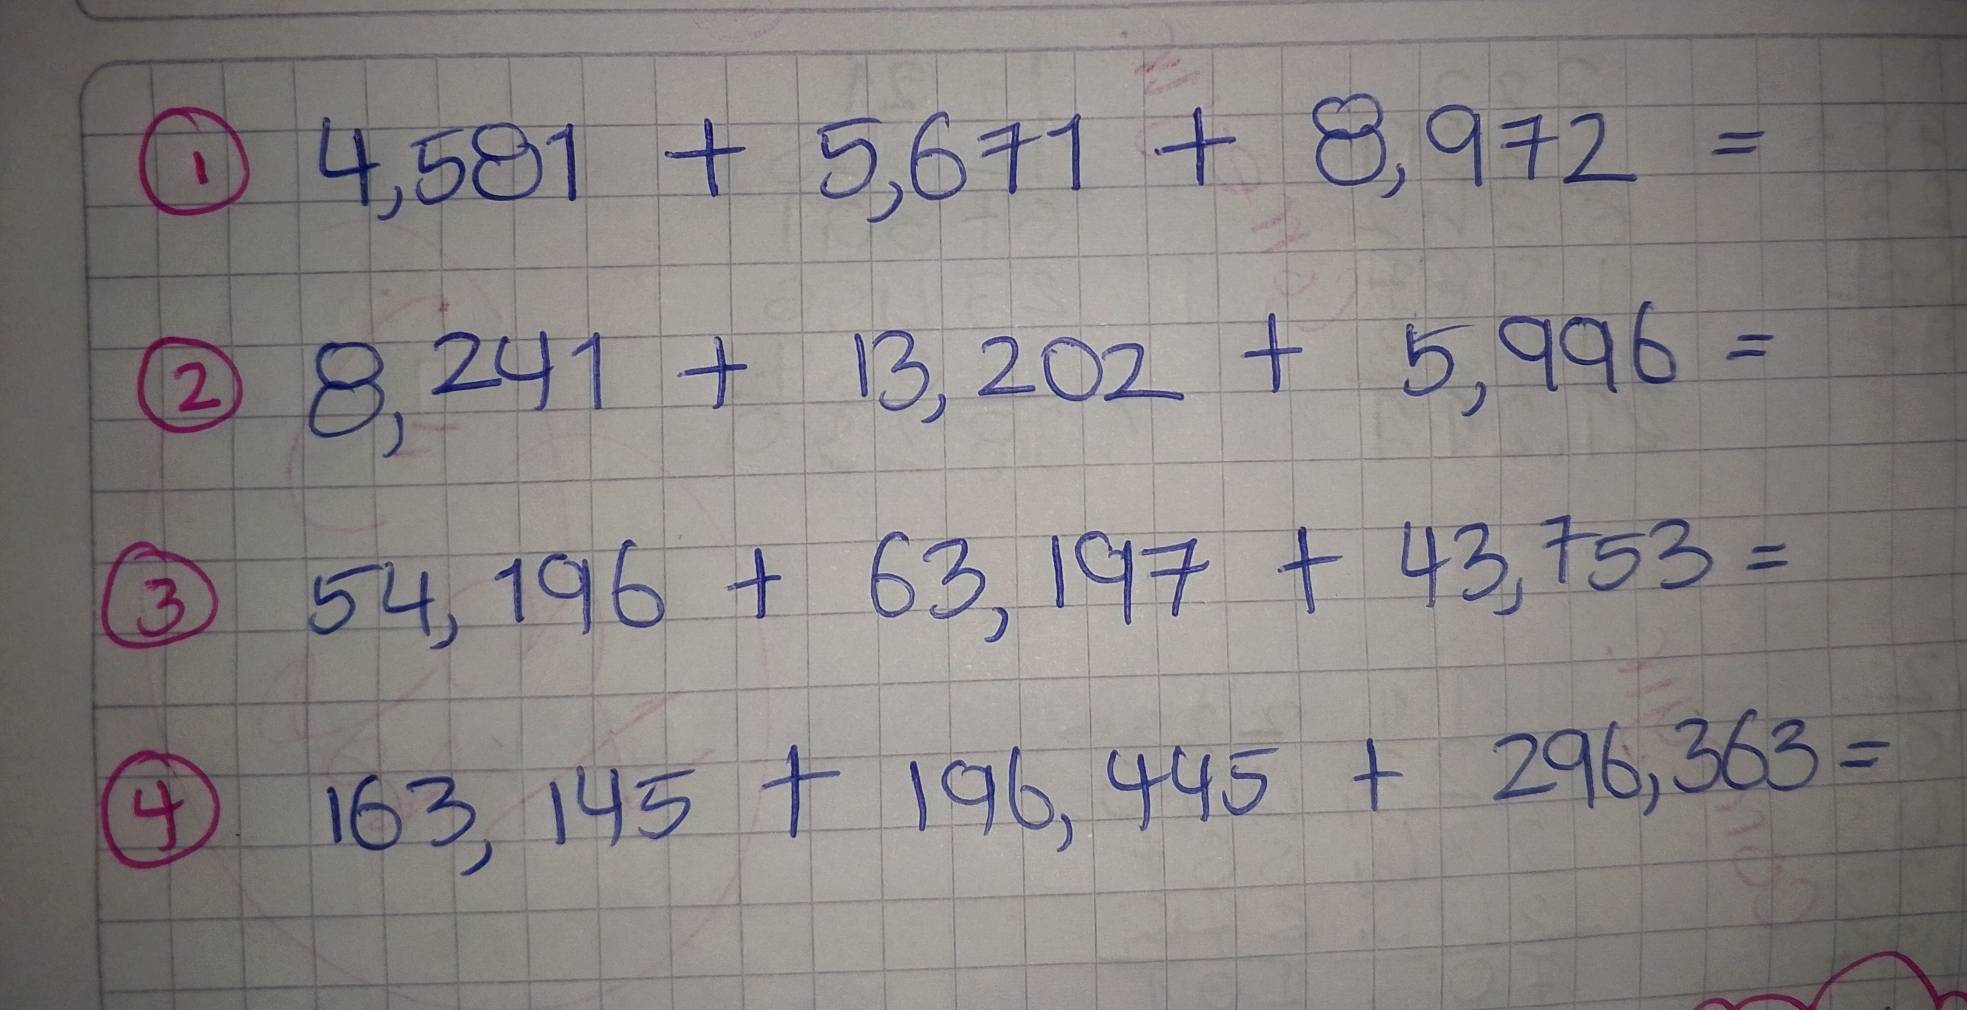 1 4,581 + 5,671 + 8,972 =
2 8,241 + 13,202 + 5,996 =
3 54,196 + 63,197 + 43,753 =
4 163,145 + 196,445 + 296,363 =